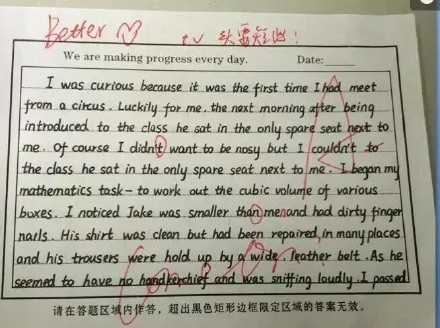 Better
头要短些!
We are making progress every day. Date:
I was curious because it was the first time I had meet
from a circus. Luckily for me. the next morning after being
introduced to the class he sat in the only spare seat next to
me. Of course I didn't want to be nosy but I couldn't to
the class he sat in the only spare seat next to me. I began my
mathematics task- to work out the cubic volume of various
boxes. I noticed Jake was smaller than men and had dirty finger
nails. His shirt was clean but had been repaired, in many places
and his trousers were hold up by a wide. leather belt. As he
seemed to have no handkerchief and was sniffing loudly. I passed
请在答题区域内作答，超出黑色矩形边框限定区域的答案无效。